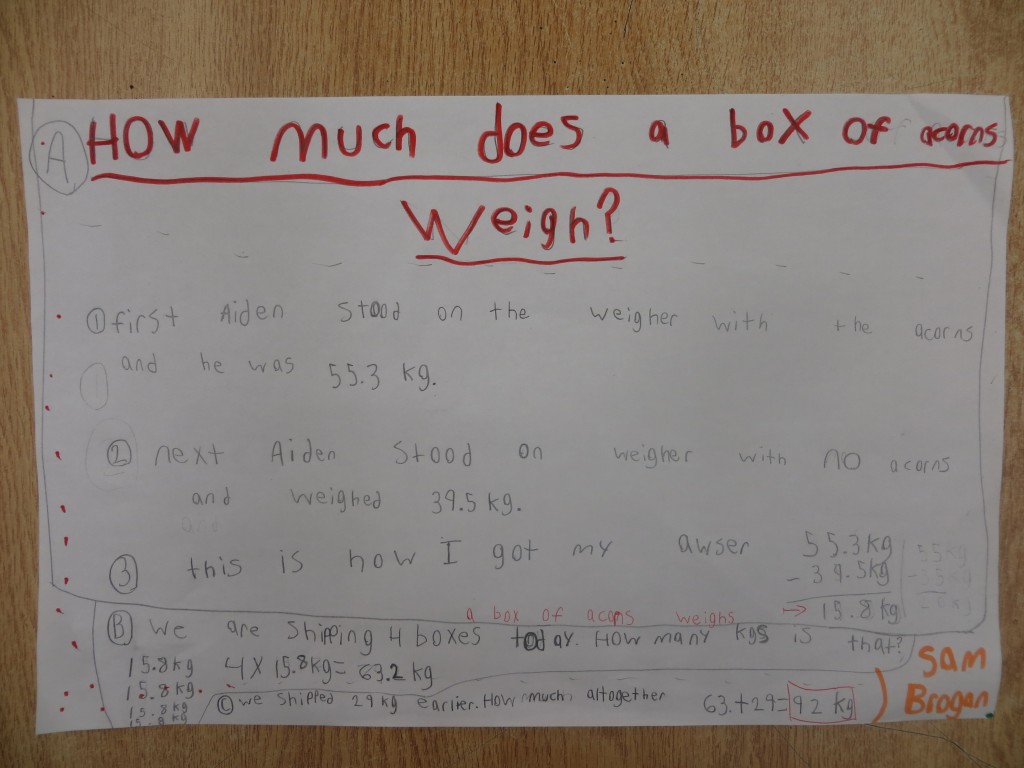 A HOW much does a box of acorns
Weigh?
① first Aiden Stood on the weigher with the acorns
and he was 55.3 kg.
② next Aiden Stood on weigher with no acorns
and weighed 39.5 kg.
③ this is how I got my awser 55.3kg
- 39.5kg
a box of acorns weighs → 15.8 kg
B We are Shipping 4 boxes today. How many kgs is that?
15.8kg 4 X 15.8kg= 63.2 kg
15.8kg.
15.8kg
15.8kg
© we Shipped 29 kg earlier. How much altogether 63.+29=92 kg
Sam
Brogan